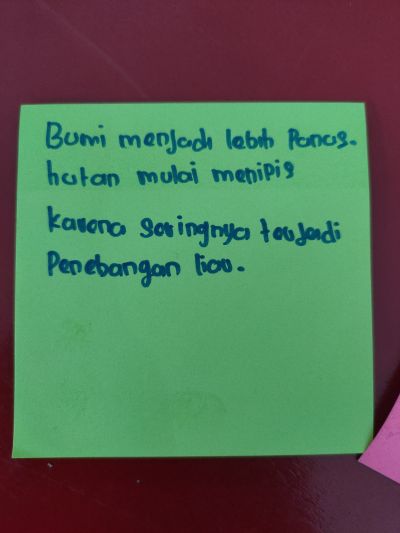 Bumi menjadi lebih Panas.
hutan mulai menipis
karena seringnya terjadi
Penebangan liar.